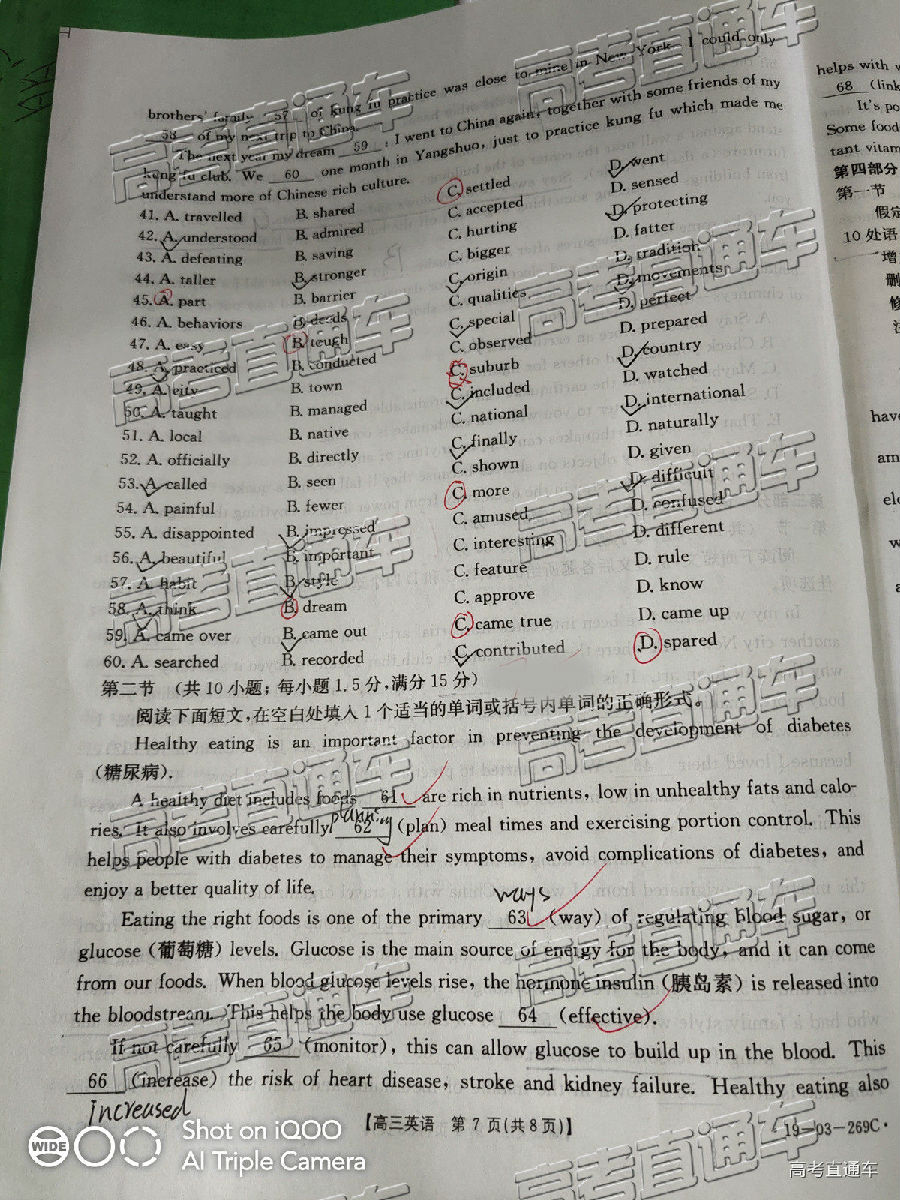 brothers' family 57 of kung fu practice was close to mine in New York. I could only
58 of my next trip to China.
The next year my dream 59 : I went to China again, together with some friends of my
kung fu club. We 60 one month in Yangshuo, just to practice kung fu which made me
understand more of Chinese rich culture.
41. A. travelled B. shared C. settled D. went
42. A. understood B. admired C. accepted D. sensed
43. A. defeating B. saving C. hurting D. protecting
44. A. taller B. stronger C. bigger D. fatter
45. A. part B. barrier C. origin D. tradition
46. A. behaviors B. deeds C. qualities D. movements
47. A. easy B. tough C. special D. perfect
48. A. practiced B. conducted C. observed D. prepared
49. A. city B. town C. suburb D. country
50. A. taught B. managed C. included D. watched
51. A. local B. native C. national D. international
52. A. officially B. directly C. finally D. naturally
53. A. called B. seen C. shown D. given
54. A. painful B. fewer C. more D. difficult
55. A. disappointed B. impressed C. amused D. confused
56. A. beautiful B. important C. interesting D. different
57. A. habit B. style C. feature D. rule
58. A. think B. dream C. approve D. know
59. A. came over B. came out C. came true D. came up
60. A. searched B. recorded C. contributed D. spared
第二节 (共10小题;每小题1.5分,满分15分)
阅读下面短文,在空白处填入1个适当的单词或括号内单词的正确形式。
Healthy eating is an important factor in preventing the development of diabetes
(糖尿病).
A healthy diet includes foods 61 are rich in nutrients, low in unhealthy fats and calo-
planning
ries. It also involves carefully 62 (plan) meal times and exercising portion control. This
helps people with diabetes to manage their symptoms, avoid complications of diabetes, and
enjoy a better quality of life.
ways
Eating the right foods is one of the primary 63 (way) of regulating blood sugar, or
glucose (葡萄糖) levels. Glucose is the main source of energy for the body, and it can come
from our foods. When blood glucose levels rise, the hormone insulin (胰岛素) is released into
the bloodstream. This helps the body use glucose 64 (effective).
If not carefully 65 (monitor), this can allow glucose to build up in the blood. This
66 (increase) the risk of heart disease, stroke and kidney failure. Healthy eating also
increased
【高三英语 第7页(共8页)】
19-03-269C·
helps with
68 (link
It's po
Some food
tant vitam
第四部分
第一节
假定
10处语
增
删
修
have
am
WIDE
Shot on iQOO
AI Triple Camera
高考直通车
高考直通车
高考直通车
高考直通车
高考直通车
高考直通车
高考直通车
高考直通车
高考直通车
高考直通车
高考直通车